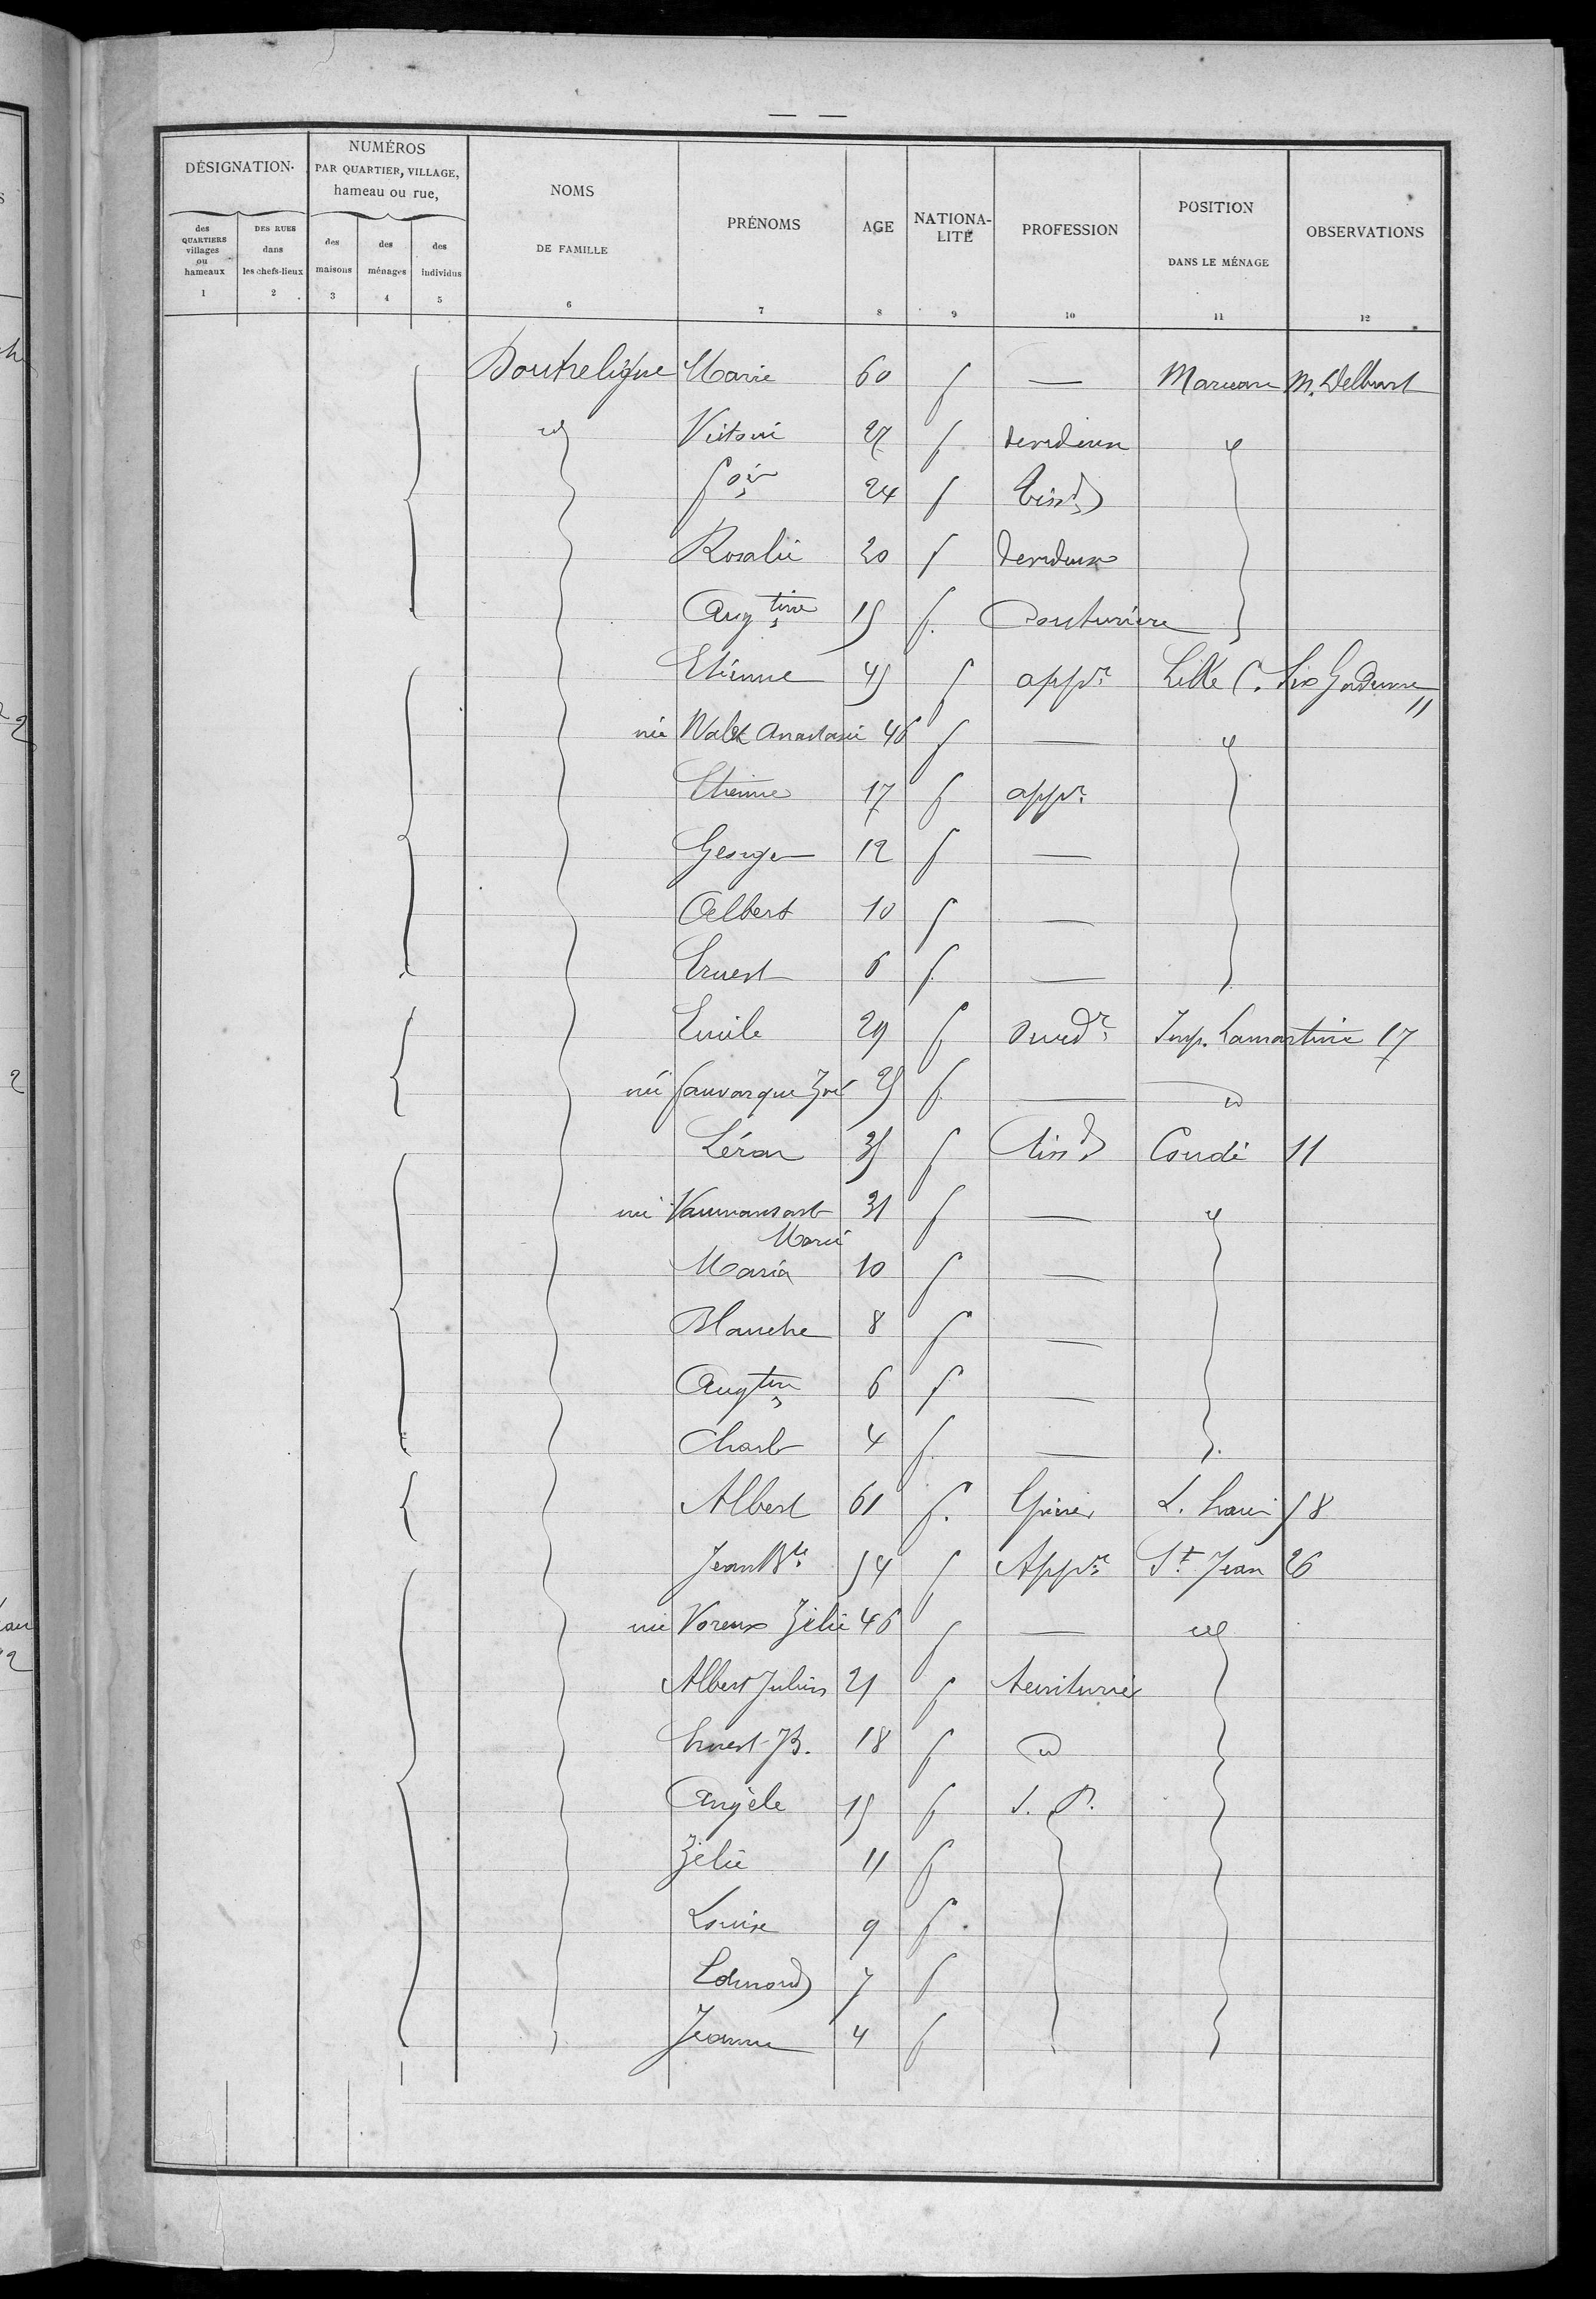 DÉSIGNATION
NUMÉROS
PAR QUARTIER, VILLAGE,
hameau ou rue,
NOMS
DE FAMILLE
PRÉNOMS
AGE
NATIONA-
LITÉ
PROFESSION
POSITION
DANS LE MÉNAGE
OBSERVATIONS
des
QUARTIERS
villages
ou
hameaux
DES RUES
dans
les chefs-lieux
des
maisons
des
ménages
des
individus
1 2 3 4 5 6 7 8 9 10 11 12
Doutreligne Marie 60 f — M. Delbart
id Victorie 27 f
24 f Tisd
Rosalie 20 f
Augtine 15 f. Couturière
Etienne 45 f appr Lille C. 11
née Anastasie 46 f —
Etienne 17 f appr
George 12 f —
Albert 10 f —
Ernest 6 f —
Emile 29 f Imp. Lamartine 17
née Fauvarque Zoé 25 f — id
Léon 35 f tisd Condé 11
née 31 f —
Marie
Maria 10 f —
Blanche 8 f —
Augtin 6 f —
Charles 4 f. —
Albert 61 f. 58
Jean Bte 54 f Appr St Jean 26
née Voreux Zélie 46 f — id
Albert Julien 21 f teinturier
Ernest JB. 18 f id
Angèle 15 f S. P.
Zélie 11 f
Louise 9 f
Edmond 7 f
Jeanne 4 f